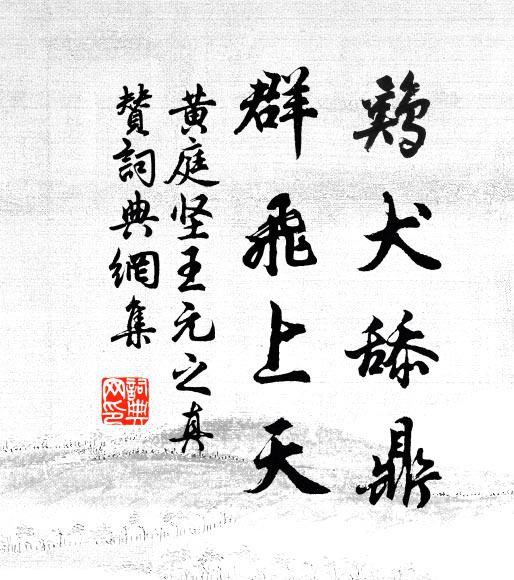 鷄犬舔鼎
群飛上天
黄庭坚王元之真
赞詞典網集
詞典
网印